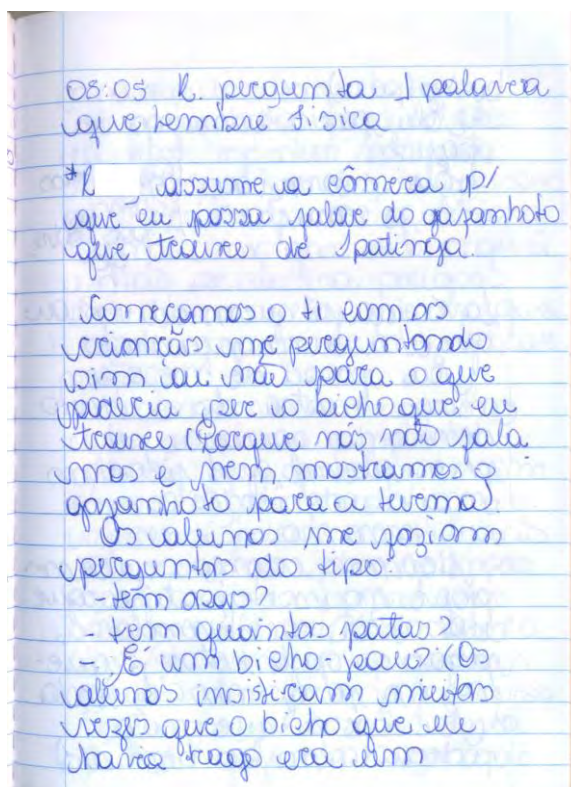 08:05 R. pergunta 1 palavra
que lembre física
*R assume a câmera p/
que eu possa falar do gafanhoto
que trouxe de Ipatinga.
Começamos o ti com as
crianças me perguntando
sim ou não para o que
poderia ser o bicho que eu
trouxe (Porque nós não fala
mos e nem mostramos o
gafanhoto para a turma).
Os alunos me faziam
perguntas do tipo:
- tem asas?
- tem quantas patas?
- É um bicho-pau? (Os
alunos insistiram muitas
vezes que o bicho que eu
havia trago era um